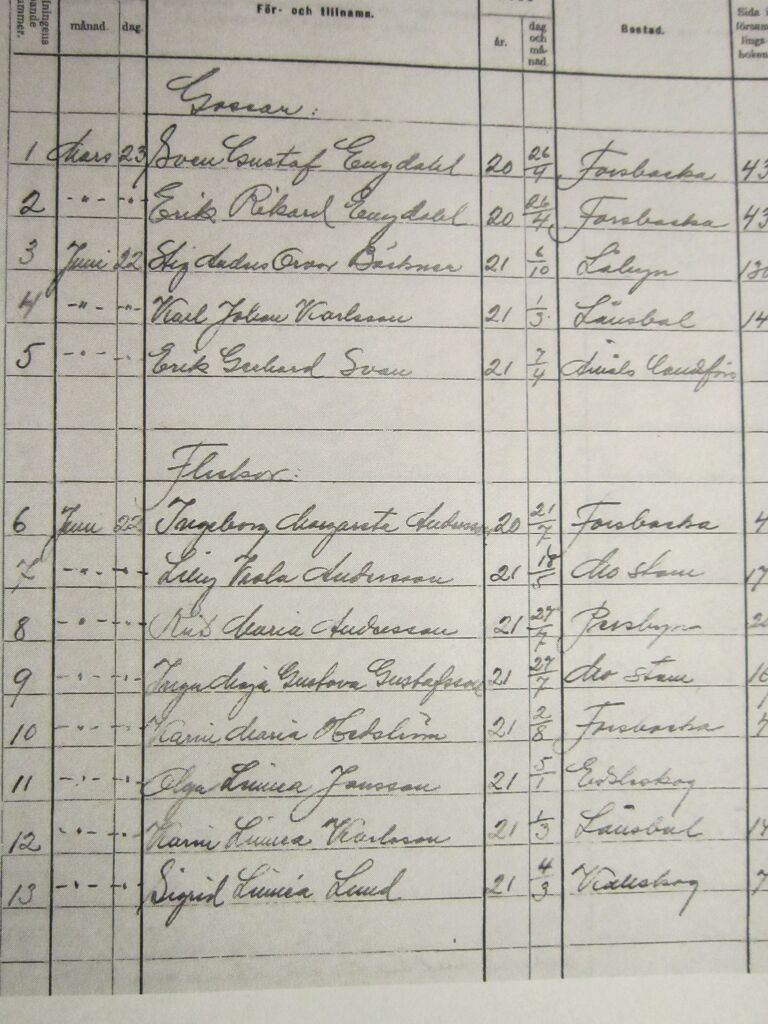 ningens
ummer.
månad.
dag.
För- och tillnamn.
år.
dag och må- nad.
Bostad.
Sida i församlings- boken
Gossar:
1 Mars 23 Sven Gustaf Engdahl 20 26/4 Forsbacka 43
2 -"- -"- Erik Rikard Engdahl 20 26/4 Forsbacka 43
3 Juni 22 Stig Anders Orvar Bäckner 21 6/10 130
4 -"- -"- Karl Johan Karlsson 21 1/3 Länsbol 14
5 -"- -"- Erik Gerhard Svan 21 7/4 Åmåls Landsförs
Flickor:
6 Juni 22 Ingeborg Margareta Andersson 20 21/7 Forsbacka 4
7 -"- -"- Lilly Viola Andersson 21 18/5 Mo stom 17
8 -"- -"- Maria Andersson 21 27/7 Persbyn 20
9 -"- -"- Maja Gustava Gustafsson 21 27/7 Mo stom 16
10 -"- -"- Karin Maria Hedström 21 2/8 Forsbacka 4
11 -"- -"- Olga Linnea Jansson 21 5/1 Edsleskog
12 -"- -"- Karin Linnea Karlsson 21 1/3 Länsbol 14
13 -"- -"- Sigrid Linnéa Lund 21 4/3 7